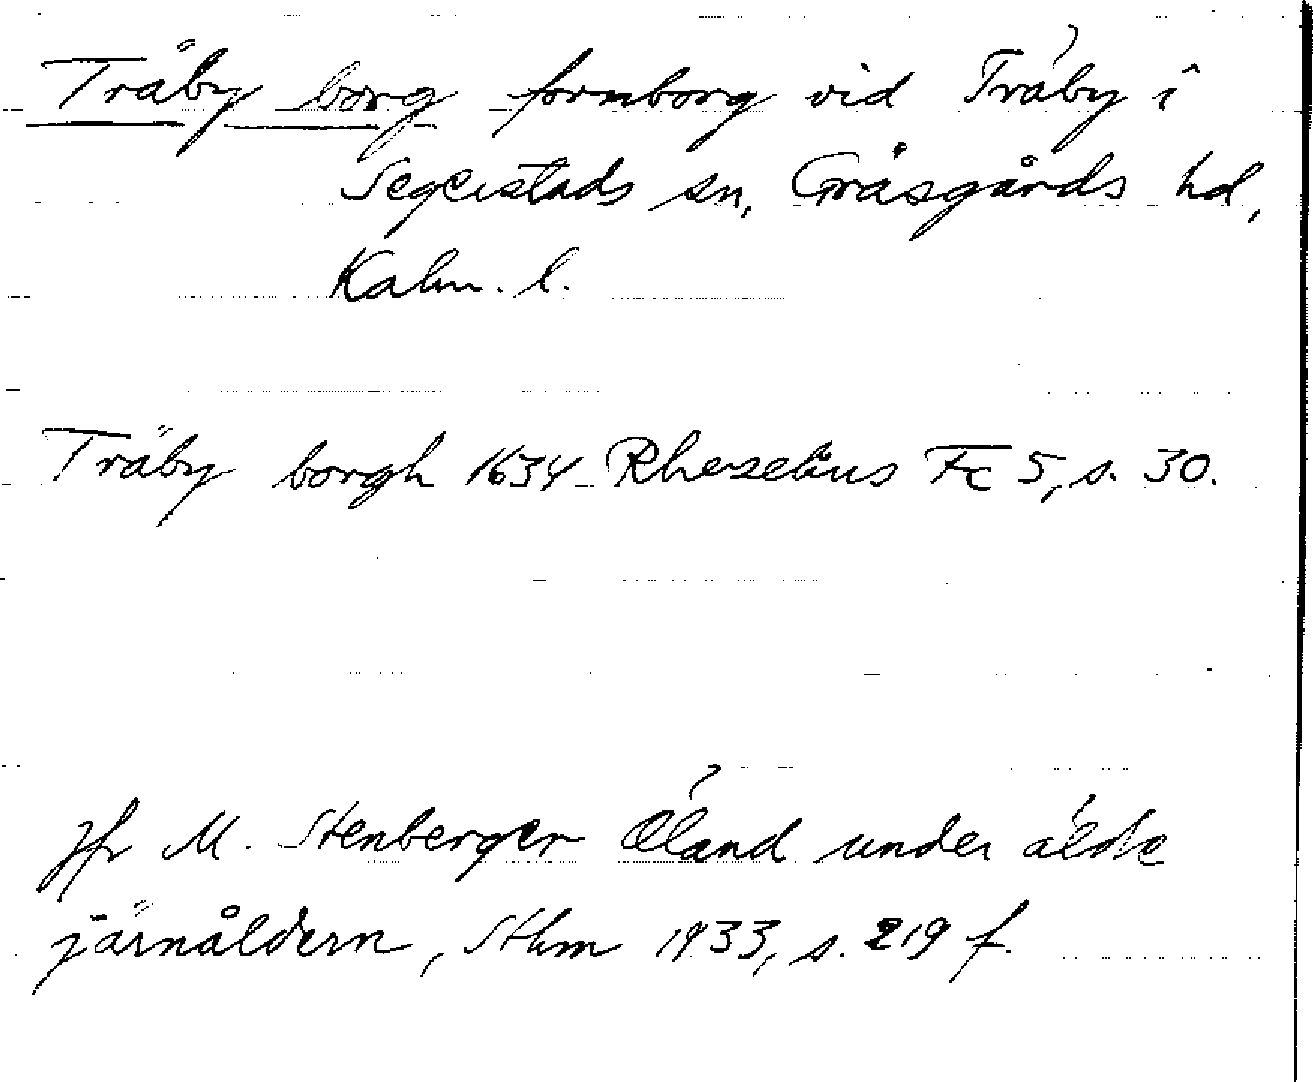 Träby borg fornborg vid Träby i
Segerstads sn, Gräsgårds hd,
Kalm. l.
Träby borgh 1634 Rhezelius Fc 5, s. 30.
Jfr M. Stenberger Öland under äldre
järnåldern, Sthm 1933, s. 219 f.